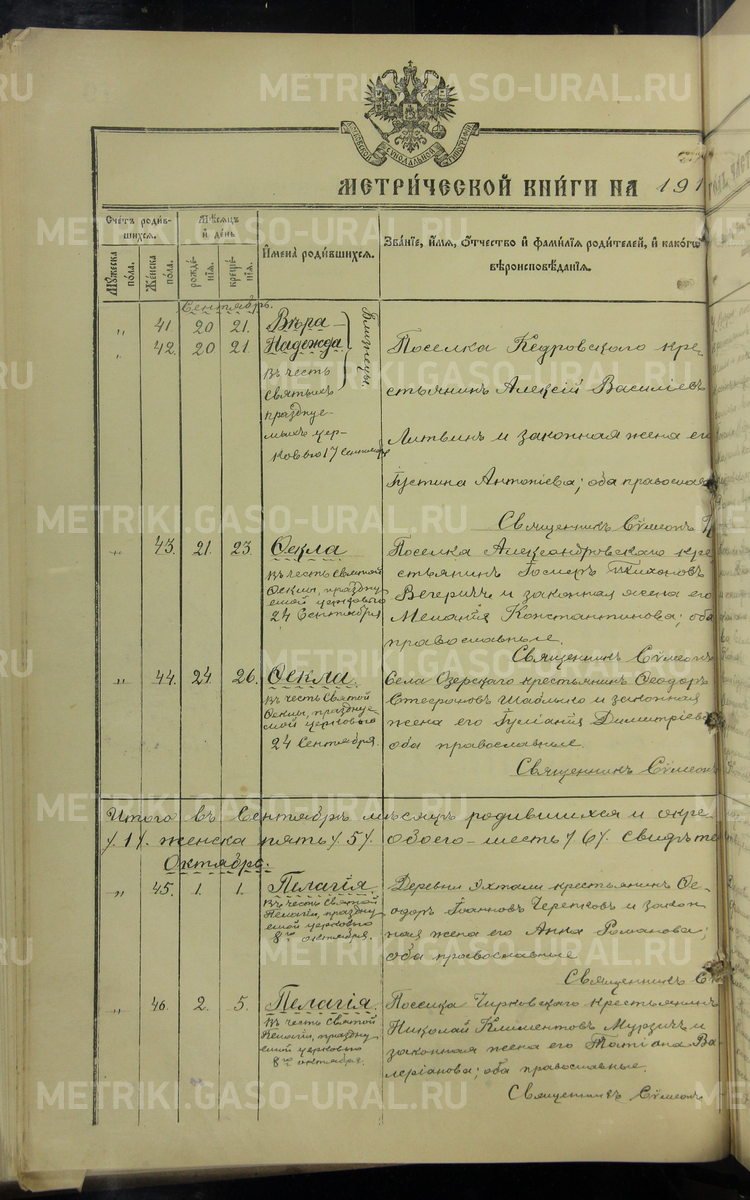 METRIKI.GASO-URAL.RU
МЕТРИ́ЧЕСКОЙ КНИ́ГИ НА 191
Счетъ роди́в-
шихся.
Мѣсяцъ
и́ день
И҆мена̀ роди́вшихся.
Зва́нїе, и҆́мя, ѻ҆́тчество и҆ фами́лїя роди́телей, и҆ како́гѡ
вѣроисповѣ́данїя.
Мужеска по́ла.
Женска по́ла.
рожде́нїя.
креще́нїя.
Сентябрь.
„ 41 20 21. Вѣра
„ 42. 20 21. Надежда
Близнецы.
въ честь
святыхъ
празднуе-
мыхъ цер-
ковью 17 сентября
Поселка Кедровского кре-
стьянинъ Алексій Василіев
Литвин и законная жена ег
Іустина Антоніева; оба православ
Священникъ Сѵмеон
„ 43. 21. 23. Ѳекла
въ честь Святой
Ѳеклы, праздну-
емой церковью
24 Сентября
Поселка Александровскаго кре
стьянинъ Тихонов
Вегеричъ и законная жена его
Меланія Константинова; оба
православные.
Священникъ Сѵмеонъ
„ 44. 24 26. Ѳекла.
въ честь Святой
Ѳеклы, праздну-
емой церковью
24 Сентября
Села Озерскаго крестьянинъ Ѳеодоръ
Стефановъ Шаблыко и законная
жена его Іуліанія Димитріева
оба православные
Священникъ Сѵмеон
Итого въ Сентябрѣ мѣсяцѣ родившихся и окре
/1/. женска пять /5/. обоего шесть /6/. Свидѣте
Октябрь.
„ 45. 1. 1. Пелагія.
въ честь Святой
Пелагіи, праздну-
емой церковью
8го октября.
Деревни Яхтали крестьянинъ Ѳе-
одоръ Іоанновъ Черепковъ и закон-
ная жена его Анна Романова;
оба православные
Священникъ С
„ 46. 2. 5. Пелагія.
въ честь Святой
Пелагіи, праздну-
емой церковью
8го октября.
Поселка Чирковскаго крестьянинъ
Николай Климентовъ Мурзичъ и
законная жена его Татіана Ва-
леріанова; оба православные.
Священникъ Сѵмеонъ